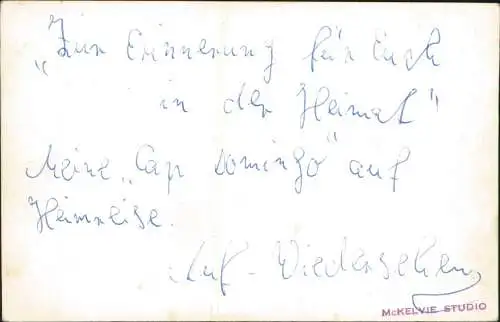 „Zur Erinnerung für Euch
in der Heimat"
Meine „Cap Domingo" auf
Heimreise.
Auf - Wiedersehen
McKELVIE STUDIO